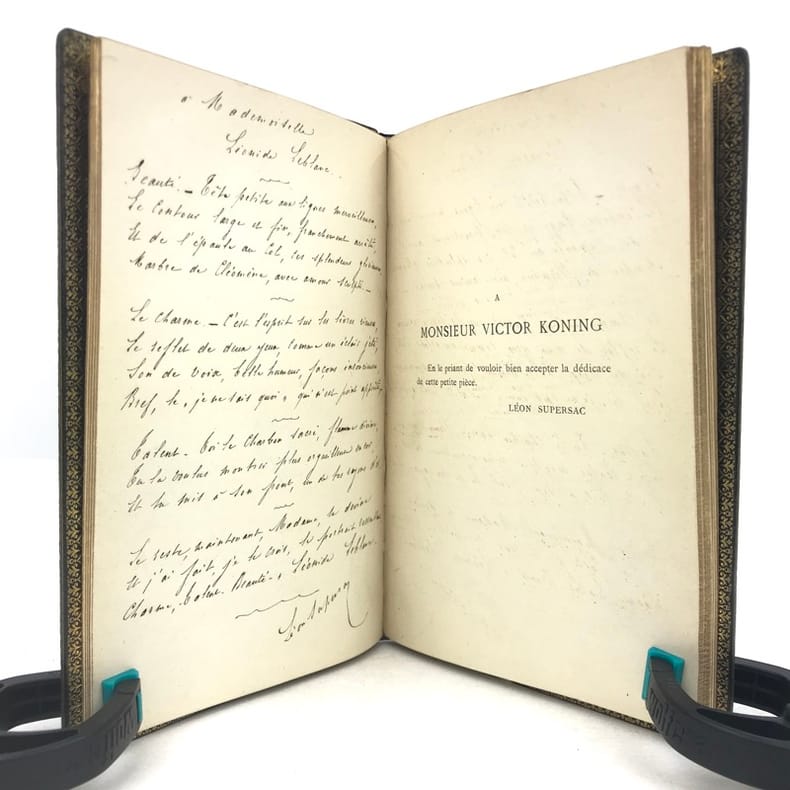 à Mademoiselle
Léonide Leblanc.
Beauté. – Tête petite aux lignes merveilleuses,
Le contour large et fin, franchement
Et de l'épaule au col, ces splendeurs
Marbre de Cléomène, avec amour sculpté. –
Le charme. – C'est l'esprit sur les lèvres
Le reflet de deux yeux, comme un éclair jeté,
Son de voix, belle humeur, façons
Bref, le "je ne sais quoi" qui n'est point apprêté.
Talent – Toi le Charbon sacré, flamme divine,
Tu la voulus montrer plus orgueilleuse
Et tu mis à son front, un de tes rayons d'or
Le reste, maintenant, Madame, se devine
Et j'ai fait, je le crois, le portrait
Charme, Talent, Beauté – Léonide Leblanc.
Léon Supersac
A
MONSIEUR VICTOR KONING
En le priant de vouloir bien accepter la dédicace
de cette petite pièce.
LÉON SUPERSAC